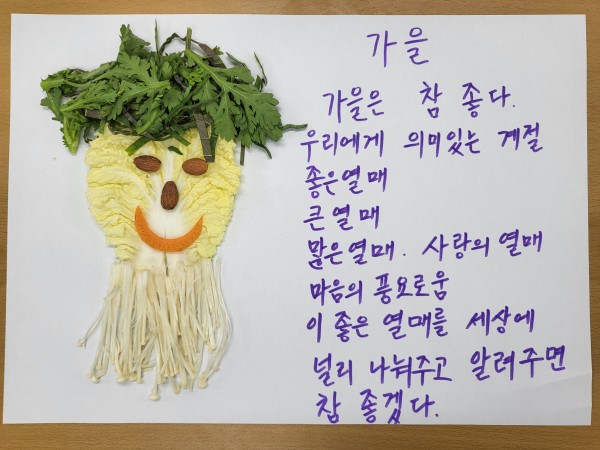 가을
가을은 참 좋다.
우리에게 의미있는 계절
좋은열매
큰열매
맑은열매. 사랑의 열매
마음의 풍요로움
이 좋은 열매를 세상에
널리 나눠주고 알려주면
참 좋겠다.